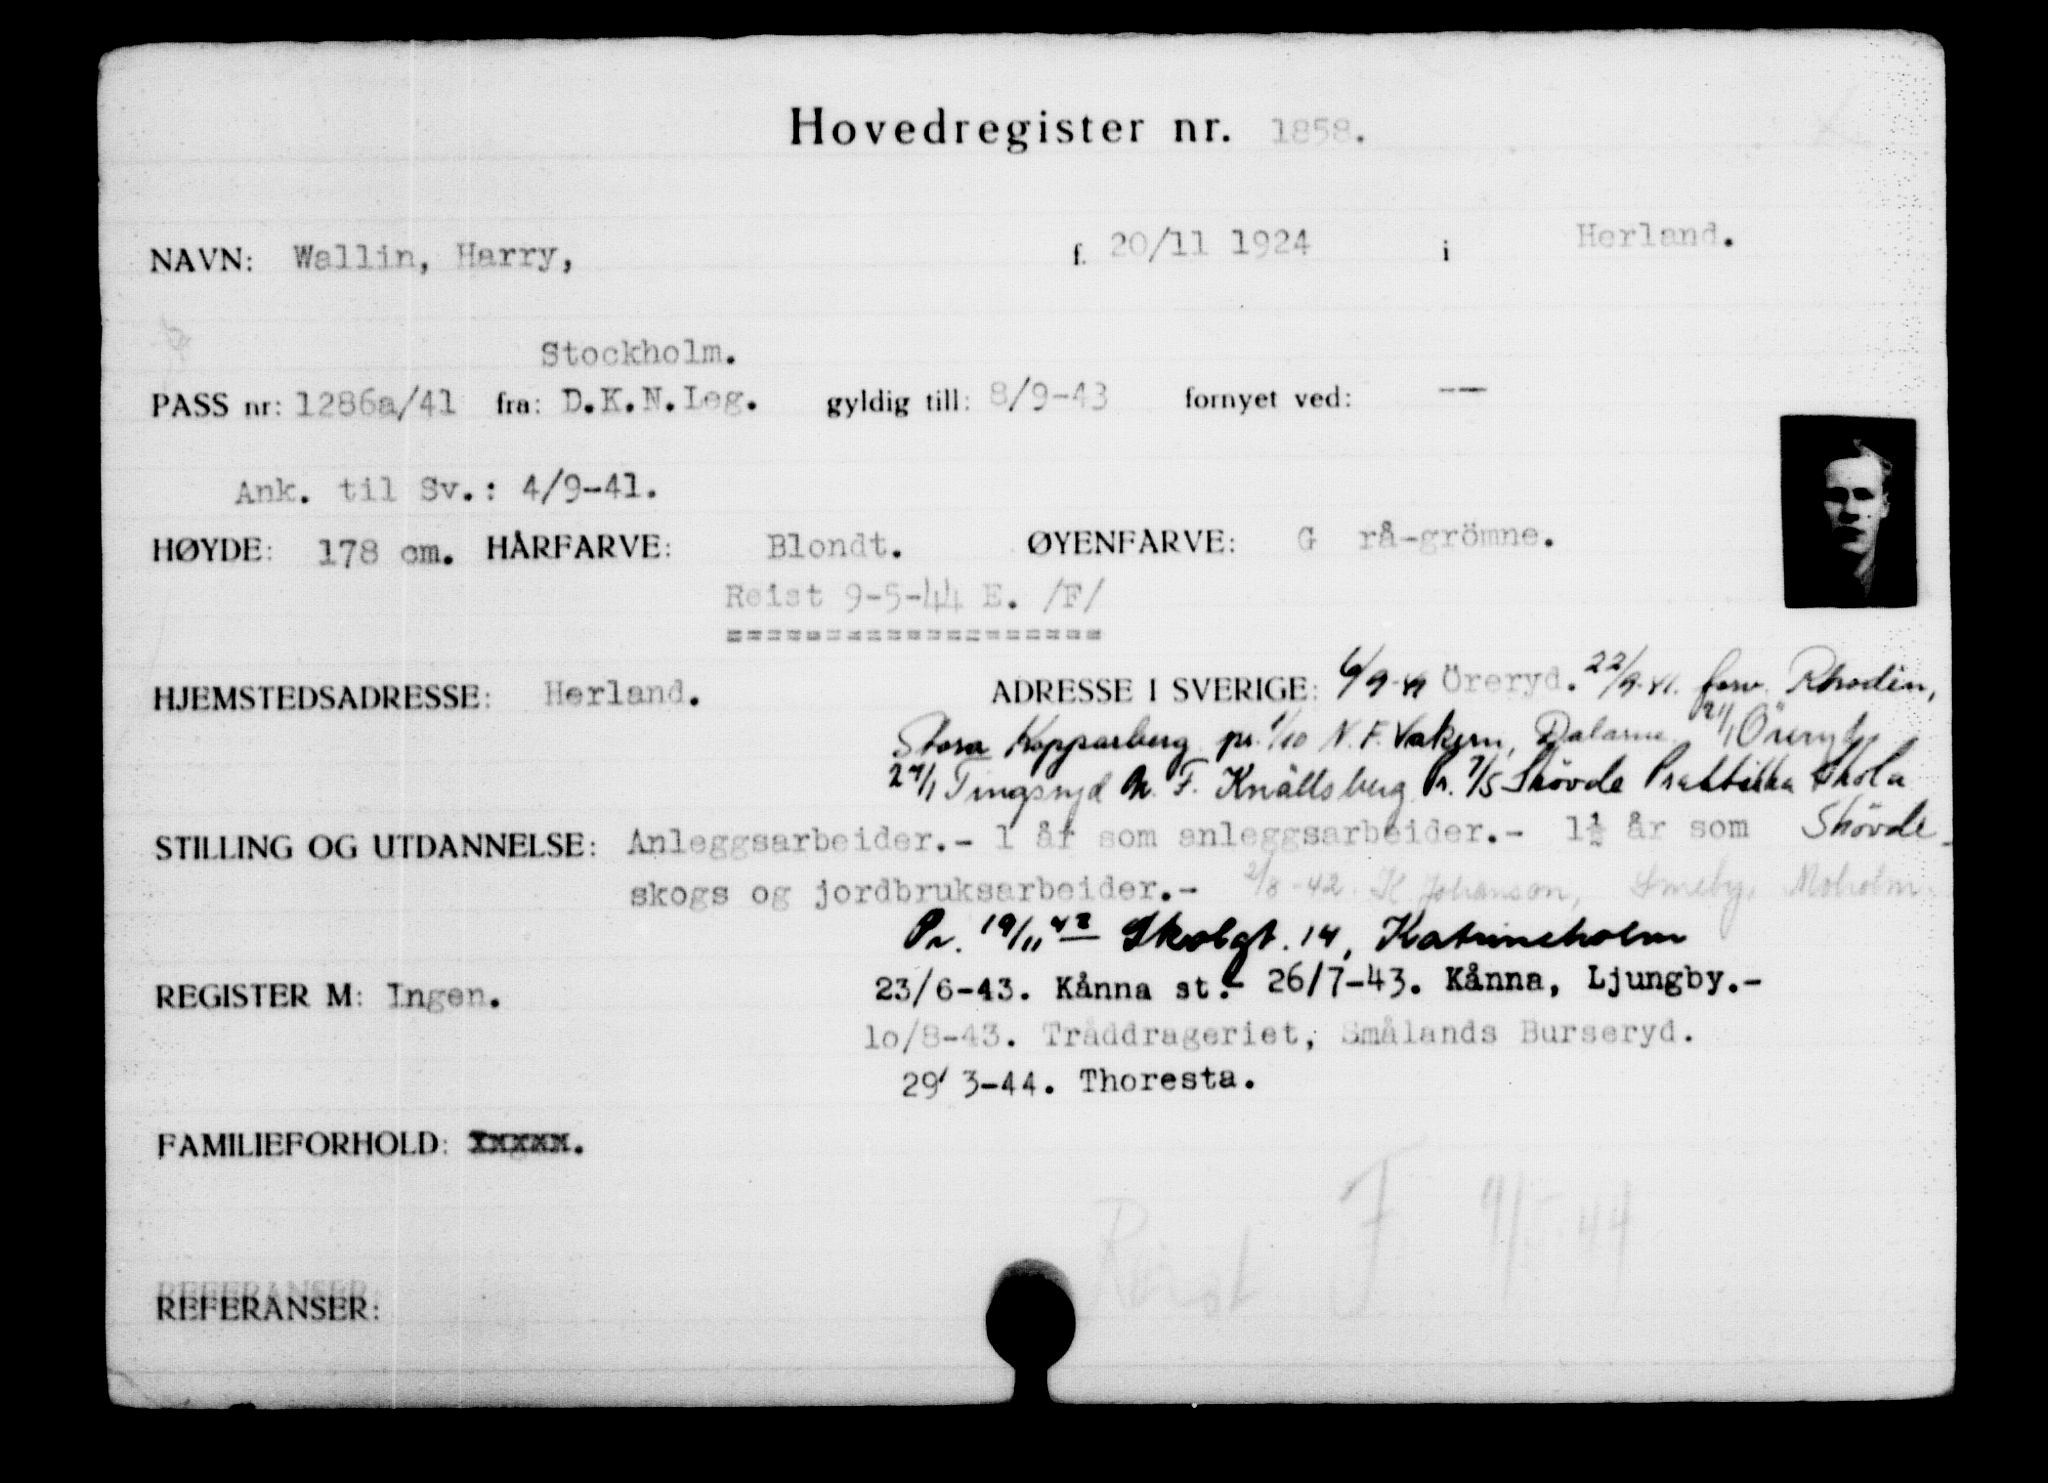 Hovedregister nr. 1858.
NAVN: Wallin, Harry, f. 20/11 1924 i Herland.
Stockholm.
PASS nr: 1286a/41 fra: D.K.N.Leg. gyldig till: 8/9-43 fornyet ved: --
Ank. til Sv.: 4/9-41.
HØYDE: 178 cm. HÅRFARVE: Blondt. ØYENFARVE: G rå-grömne.
Reist 9-5-44 E. /F/
===================
HJEMSTEDSADRESSE: Herland. ADRESSE I SVERIGE: 6/9-41 Öreryd. 22/9-41. forv. Rhodin,
Stora Kopparberg pr. 1/10 N.F. Vakern, Dalarne 21/1 Öreryd
27/1 Tingsryd N.F. Knällsberg Pr. 7/5 Skövde Praktiska Skola
STILLING OG UTDANNELSE: Anleggsarbeider.- 1 år som anleggsarbeider.- 1½ år som Skövde
skogs og jordbruksarbeider.- 2/8-42 K Johanson, Smeby, Moholm
Pr. 19/11 42 Skolgt. 14, Katrineholm
REGISTER M: Ingen. 23/6-43. Kånna st.- 26/7-43. Kånna, Ljungby.-
10/8-43. Tråddrageriet, Smålands Burseryd.
29/3-44. Thoresta.
FAMILIEFORHOLD:
Reist F 9/5-44
REFERANSER:
REFERANSER: